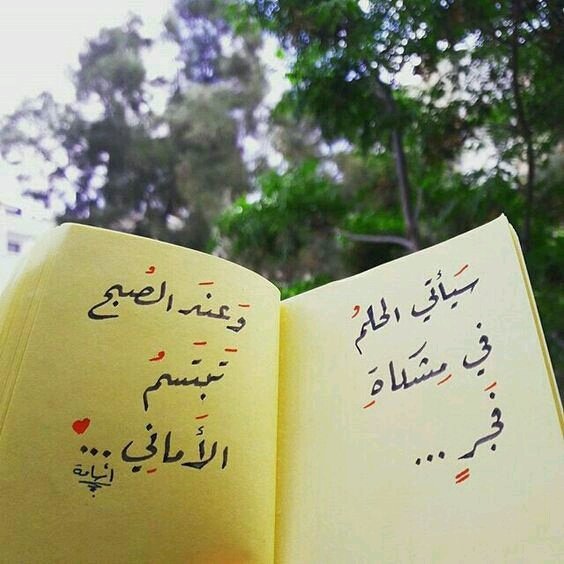 سَيأتي الحلمُ
في مِشكاةِ
فَجرٍ ...
وَعندَ الصُبح
تَبتَسمُ
الأَماني ...